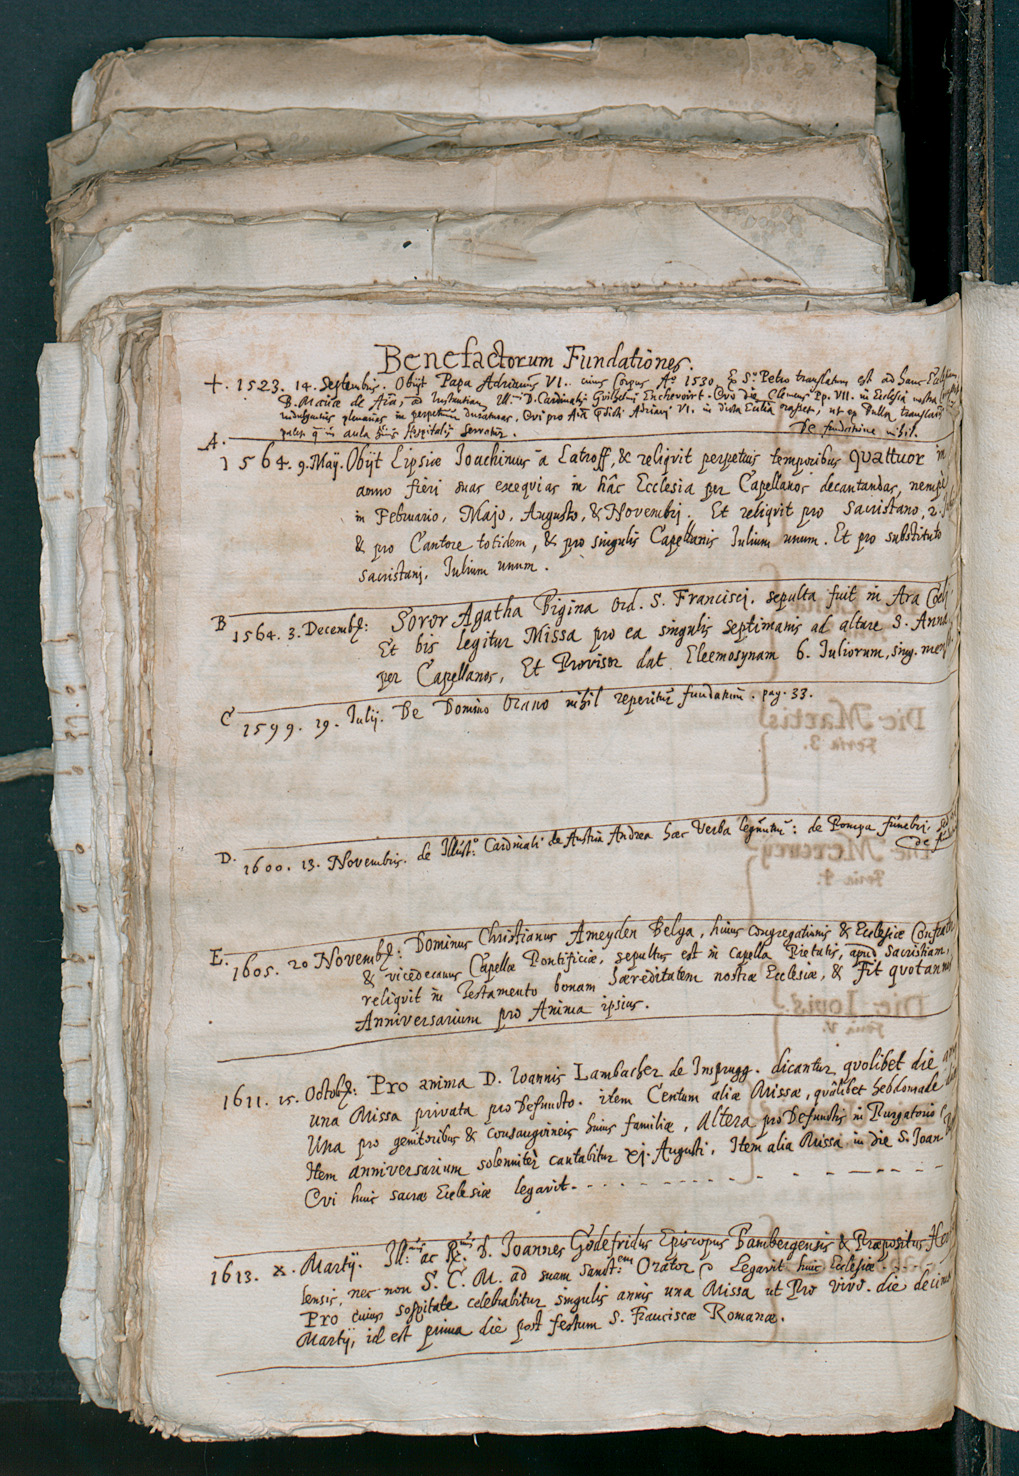 Benefactorum Fundationes.
+. 1523. 14. Septembris. Obijt Papa Adrianus VI. cuius Corpus Aº 1530 ex Sº Petro translatum est ad hanc
B. Mariæ de Aīa, ad Instantiam Ill.mi D. Cardinalis Guilhelmi Enchevoirt. Quo die Clemens Pp. VII. in Ecclesia nostra
indulgentias plenarias in perpetuum
in aula Hospitalis servatur. De fundatione nihil.
A.
1564. 9. Maÿ. Obijt Lipsiæ Joachimus à Latroff, & reliqvit perpetuis temporibus qvattuor in
anno fieri suas exequias in hâc Ecclesia per Capellanos decantandas, nempè
in Februario, Majo, Augusto, & Novembrj. Et reliqvit pro Sacristano, 2.
& pro Cantore totidem, & pro singulis Capellanis Iulium unum. Et pro substituto
sacristanj, Iulium unum.
B 1564. 3. Decemb: Soror Agatha Bigina Ord. S. Franciscj, sepulta fuit in Ara Coeli
Et bis legitur Missa pro ea singulis septimanis ad altare S. Annæ
per Capellanos, Et Provisor dat Eleemosynam 6. Iuliorum, sing. mens.
C 1599. 19. Iulij. De Domino Orano nihil reperitur fundatum. pag. 33.
D. 1600. 13. Novembris. de Illustº. Cardinali de Austria Andrea hæc Verba leguntur: de Pompa funebri. sed
de
E. 1605. 20 Novemb: Dominus Christianus Ameyden Belga, huius congregationis & Ecclesiæ Confrater
& vicedecanus Capellæ Pontificiæ, sepultus est in capella Pietatis, apud Sacristiam,
reliqvit in Testamento bonam hæreditatem nostræ Ecclesiæ, & Fit qvotannis
Anniversarium pro Anima ipsius.
1611. 15. Octob: Pro anima D. Ioannis Lambacher de Insprugg. dicantur qvolibet die
una Missa privata pro Defuncto. item Centum aliæ Missæ, qvôlibet hebdomade
Una pro genitoribus & consangvineis huius familiæ, Altera pro Defunctis in Purgatorio
Item anniversarium solenniter cantabitur xj. Augusti. Item alia Missa in die S. Joan
Cvi huic sacræ Ecclesiæ legavit.
1613. X. Martij. Ill.mus ac R.mus D. Joannes Godefridus Episcopus Bambergensis & Præpositus
lensis, nec non S. C. M. ad suam Sanct.em Orator Legavit huic Ecclesiæ
Pro cuius sospitate celebrabitur singulis annis una Missa ut Pro vivo. die decima
Martij, id est prima die post festum S. Franciscæ Romanæ.
Die Martis
Feria 3.
Die Mercurij
Feria 4.
Die Iovis
Feria V.